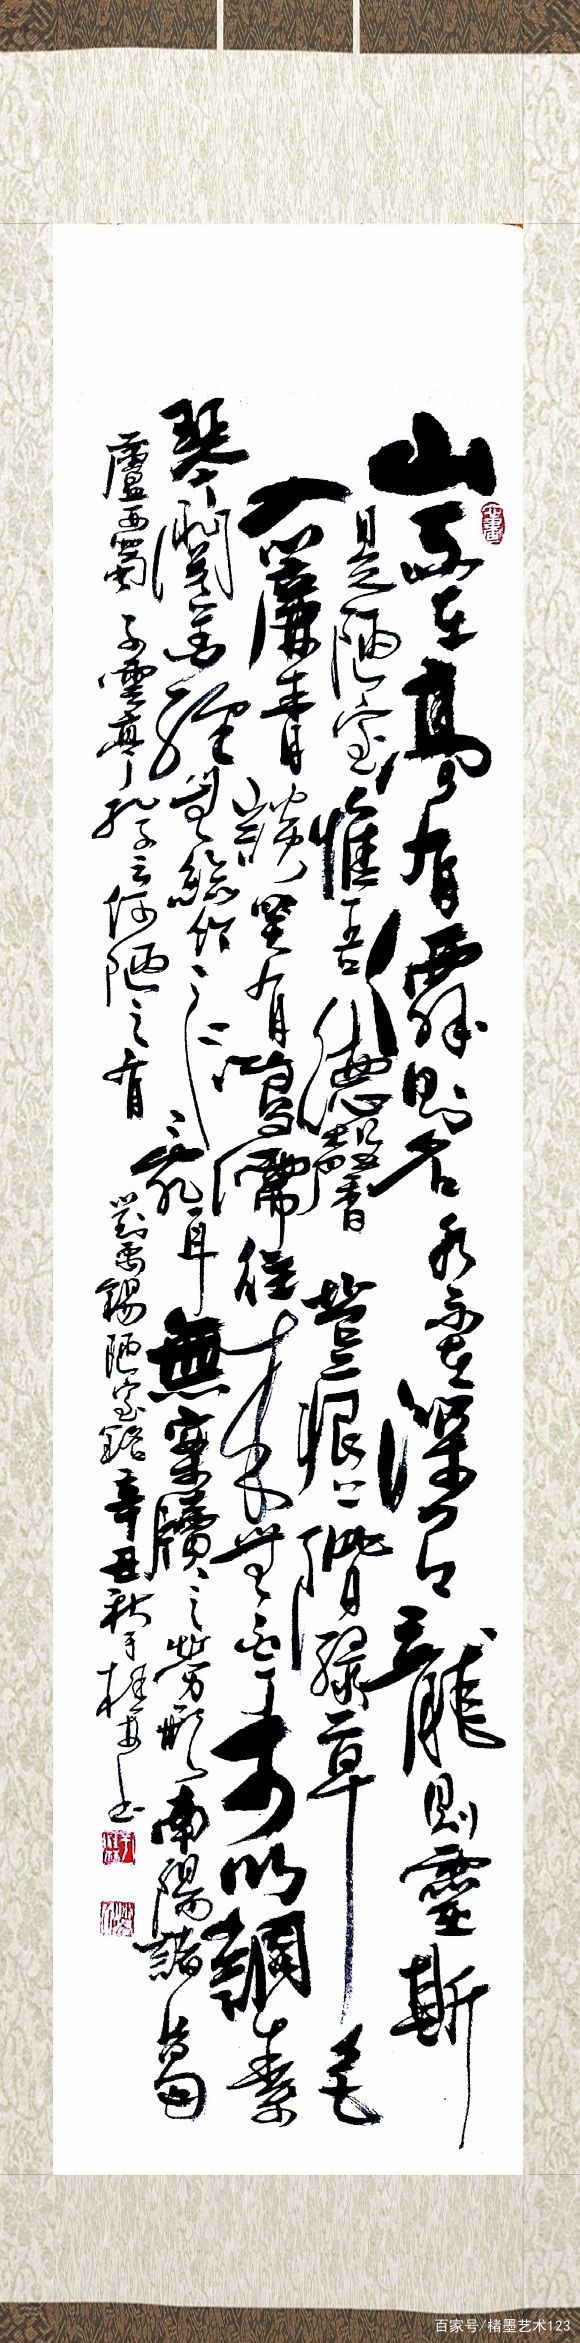 山不在高有僊則名水不在深有龍則靈斯
是陋室惟吾德馨苔痕上階綠草色
入簾青談笑有鴻儒往來無白丁可以調素
琴閱金經無絲竹之亂耳無案牘之勞形南陽諸葛
廬西蜀子雲亭孔子云何陋之有 劉禹錫陋室銘 辛丑秋于桂
百家号/楮墨艺术123